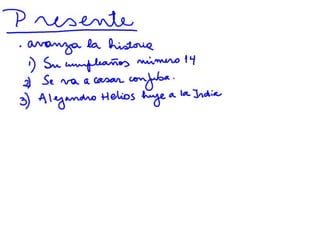 Presente
. avanza la historia
1) Su cumpleaños número 14
2) Se va a casar con Juba.
3) Alejandro Helios huye a la India